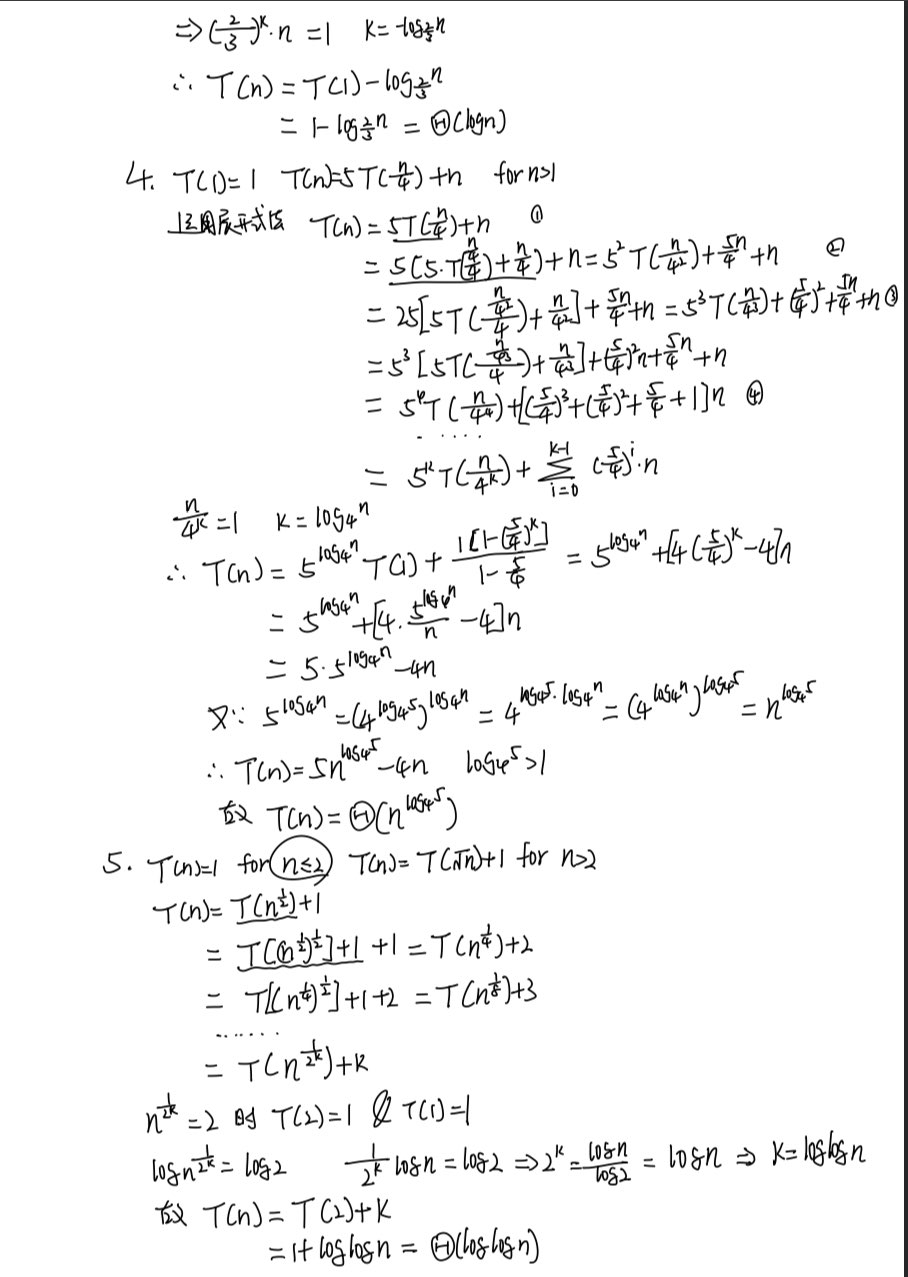 ⇒ (2/3)^k · n = 1  k = -log_{2/3} n
∴ T(n) = T(1) - log_{2/3} n
= 1 - log_{2/3} n = Θ(logn)
4. T(1)=1  T(n)=5T(n/4)+n  for n>1
展开式法  T(n) = 5T(n/4)+n  ①
= 5(5·T((n/4)/4)+n/4)+n = 5^2 T(n/4^2)+5n/4+n  ②
= 25[5T((n/4^2)/4)+n/4^2]+5n/4+n = 5^3 T(n/4^3)+(5/4)^2+5n/4+n ③
= 5^3 [5T((n/4^3)/4)+n/4^3]+(5/4)^2 n+5/4 n+n
= 5^4 T(n/4^4)+[(5/4)^3+(5/4)^2+5/4+1]n  ④
......
= 5^k T(n/4^k)+∑_{i=0}^{k-1} (5/4)^i·n
n/4^k = 1  k = log_4 n
∴ T(n) = 5^{log_4 n} T(1) + 1[1-(5/4)^k]/(1-5/4) = 5^{log_4 n}+[4(5/4)^k-4]n
= 5^{log_4 n}+[4·5^{log_4 n}/n-4]n
= 5·5^{log_4 n}-4n
又∵ 5^{log_4 n} = (4^{log_4 5})^{log_4 n} = 4^{log_4 5·log_4 n} = (4^{log_4 n})^{log_4 5} = n^{log_4 5}
∴ T(n) = 5n^{log_4 5}-4n  log_4 5>1
故 T(n) = Θ(n^{log_4 5})
5. T(n)=1 for n≤2  T(n)=T(√n)+1 for n>2
T(n) = T(n^{1/2})+1
= T[(n^{1/2})^{1/2}]+1+1 = T(n^{1/4})+2
= T[(n^{1/4})^{1/2}]+1+2 = T(n^{1/8})+3
.......
= T(n^{1/2^k})+k
n^{1/2^k} = 2 时 T(2)=1 & T(1)=1
log n^{1/2^k} = log2  1/2^k logn = log2 ⇒ 2^k = logn/log2 = logn ⇒ k = loglogn
故 T(n) = T(2)+k
= 1+loglogn = Θ(loglogn)